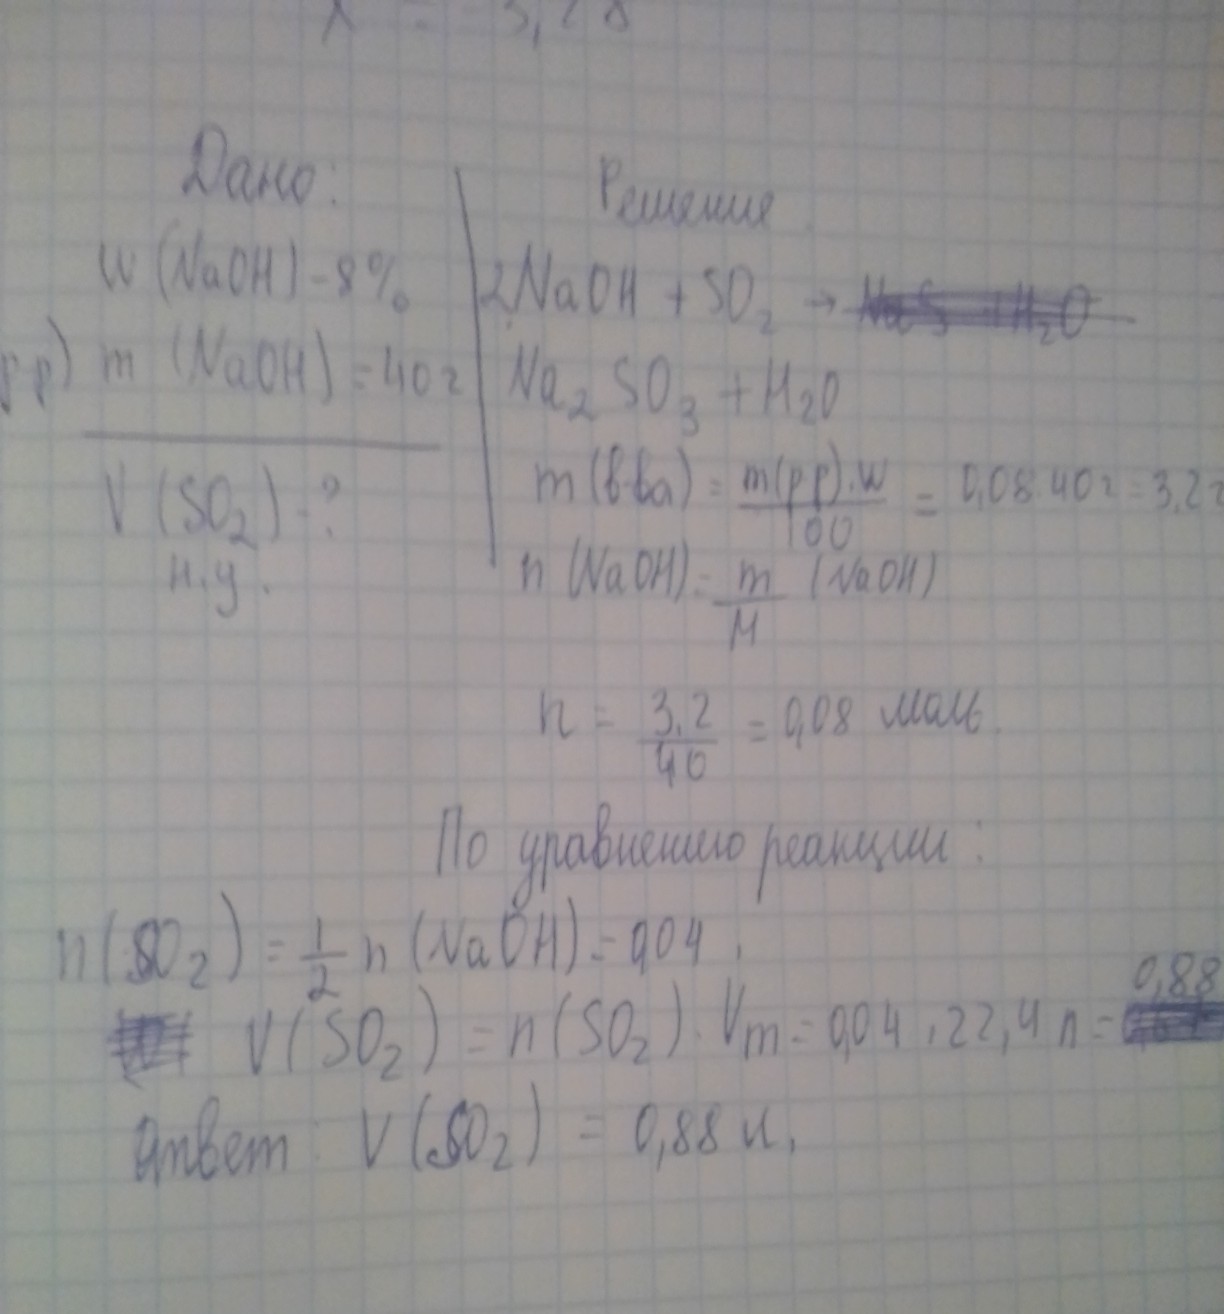 x = 3,28
Дано:
W (NaOH) - 8%
рр) m (NaOH) = 40г
V (SO2) - ?
н.у.
Решение
2NaOH + SO2 →
Na2 SO3 + H2O
m(в-ва) = m(рр).w / 100 = 0,08.40г = 3,2г
n (NaOH) = m / M (NaOH)
n = 3,2 / 40 = 0,08 моль.
По уравнению реакции:
n(SO2) = 1/2 n (NaOH) = 0,04.
V(SO2) = n(SO2). Vm = 0,04 . 22,4 л = 0,88
Ответ: V (SO2) = 0,88 л.